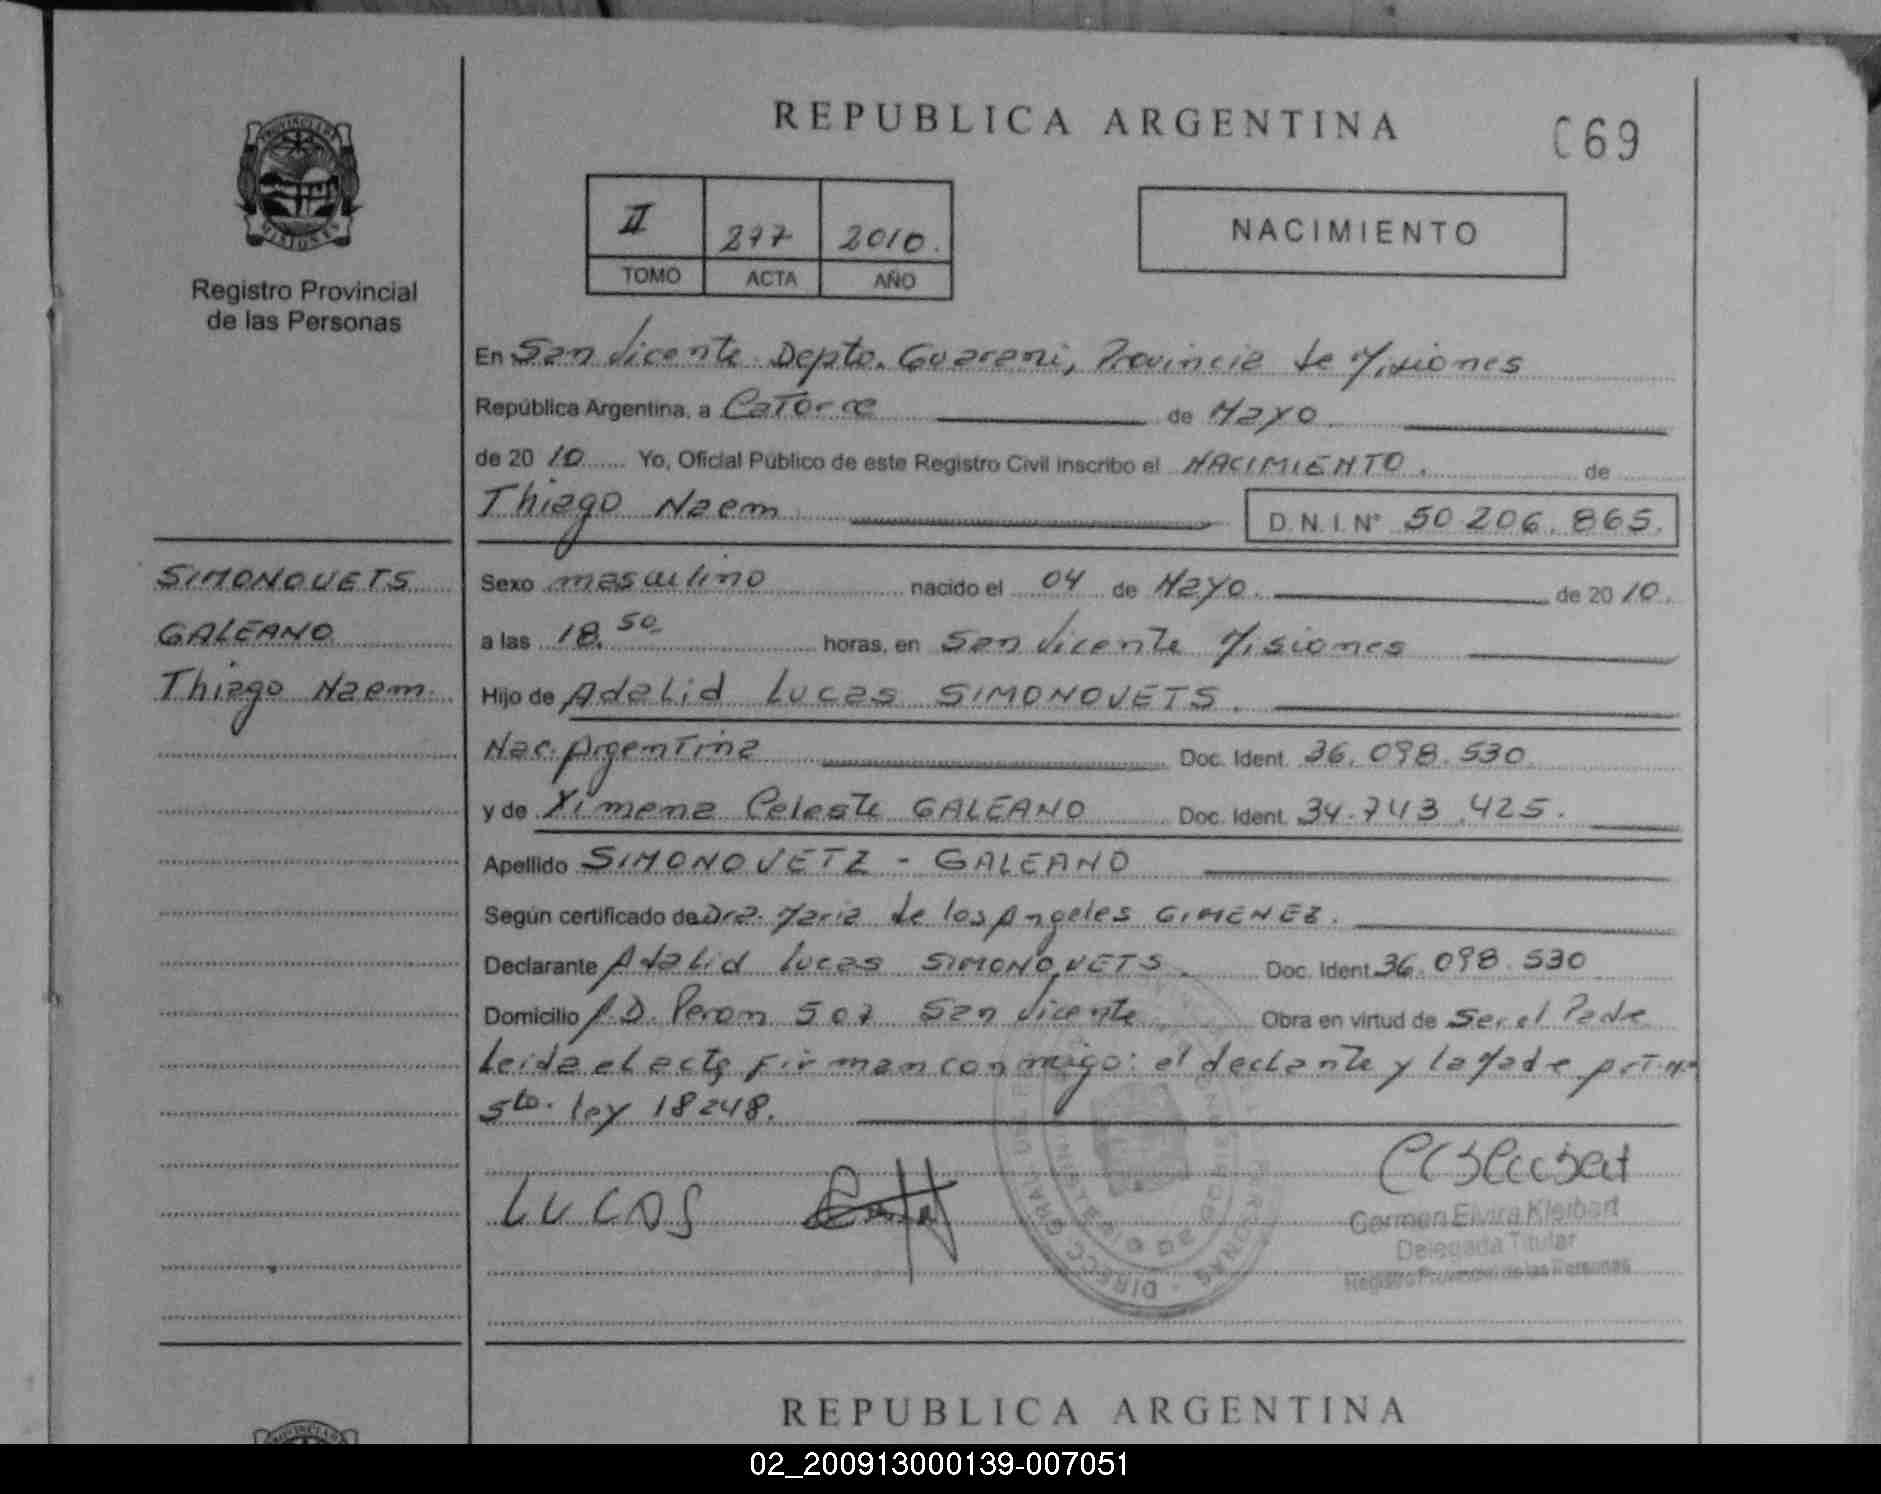 REPUBLICA ARGENTINA
C69
PROVINCIA DE
MISIONES
Registro Provincial
de las Personas
II 277 2010.
TOMO ACTA AÑO
NACIMIENTO
En San Vicente Depto. Guarani, Provincia de Misiones
República Argentina, a Catorce de Mayo
de 2010 Yo, Oficial Público de este Registro Civil inscribo el NACIMIENTO. de
Thiago Naem D.N.I. N° 50.206.865.
SIMONOVETS
GALEANO
Thiago Naem.
Sexo masculino nacido el 04 de Mayo. de 2010.
a las 18.50 horas, en San Vicente Misiones
Hijo de Adalid Lucas SIMONOVETS.
Nac. Argentina Doc. Ident. 36.098.530
y de Ximena Celeste GALEANO Doc. Ident. 34.743.425.
Apellido SIMONOVETZ - GALEANO
Según certificado de Dra. Maria de los Angeles GIMENEZ.
Declarante Adalid Lucas SIMONOVETS. Doc. Ident. 36.098.530
Domicilio J.D. Peron 507 San Vicente Obra en virtud de Ser el Padre
Leida el acta firman conmigo: el declante y la Made
5to. ley 18248.
LUCAS
Carmen Elvira Kleibert
Delegada Titular
Registro Provincial de las Personas
REPUBLICA ARGENTINA
02_200913000139-007051